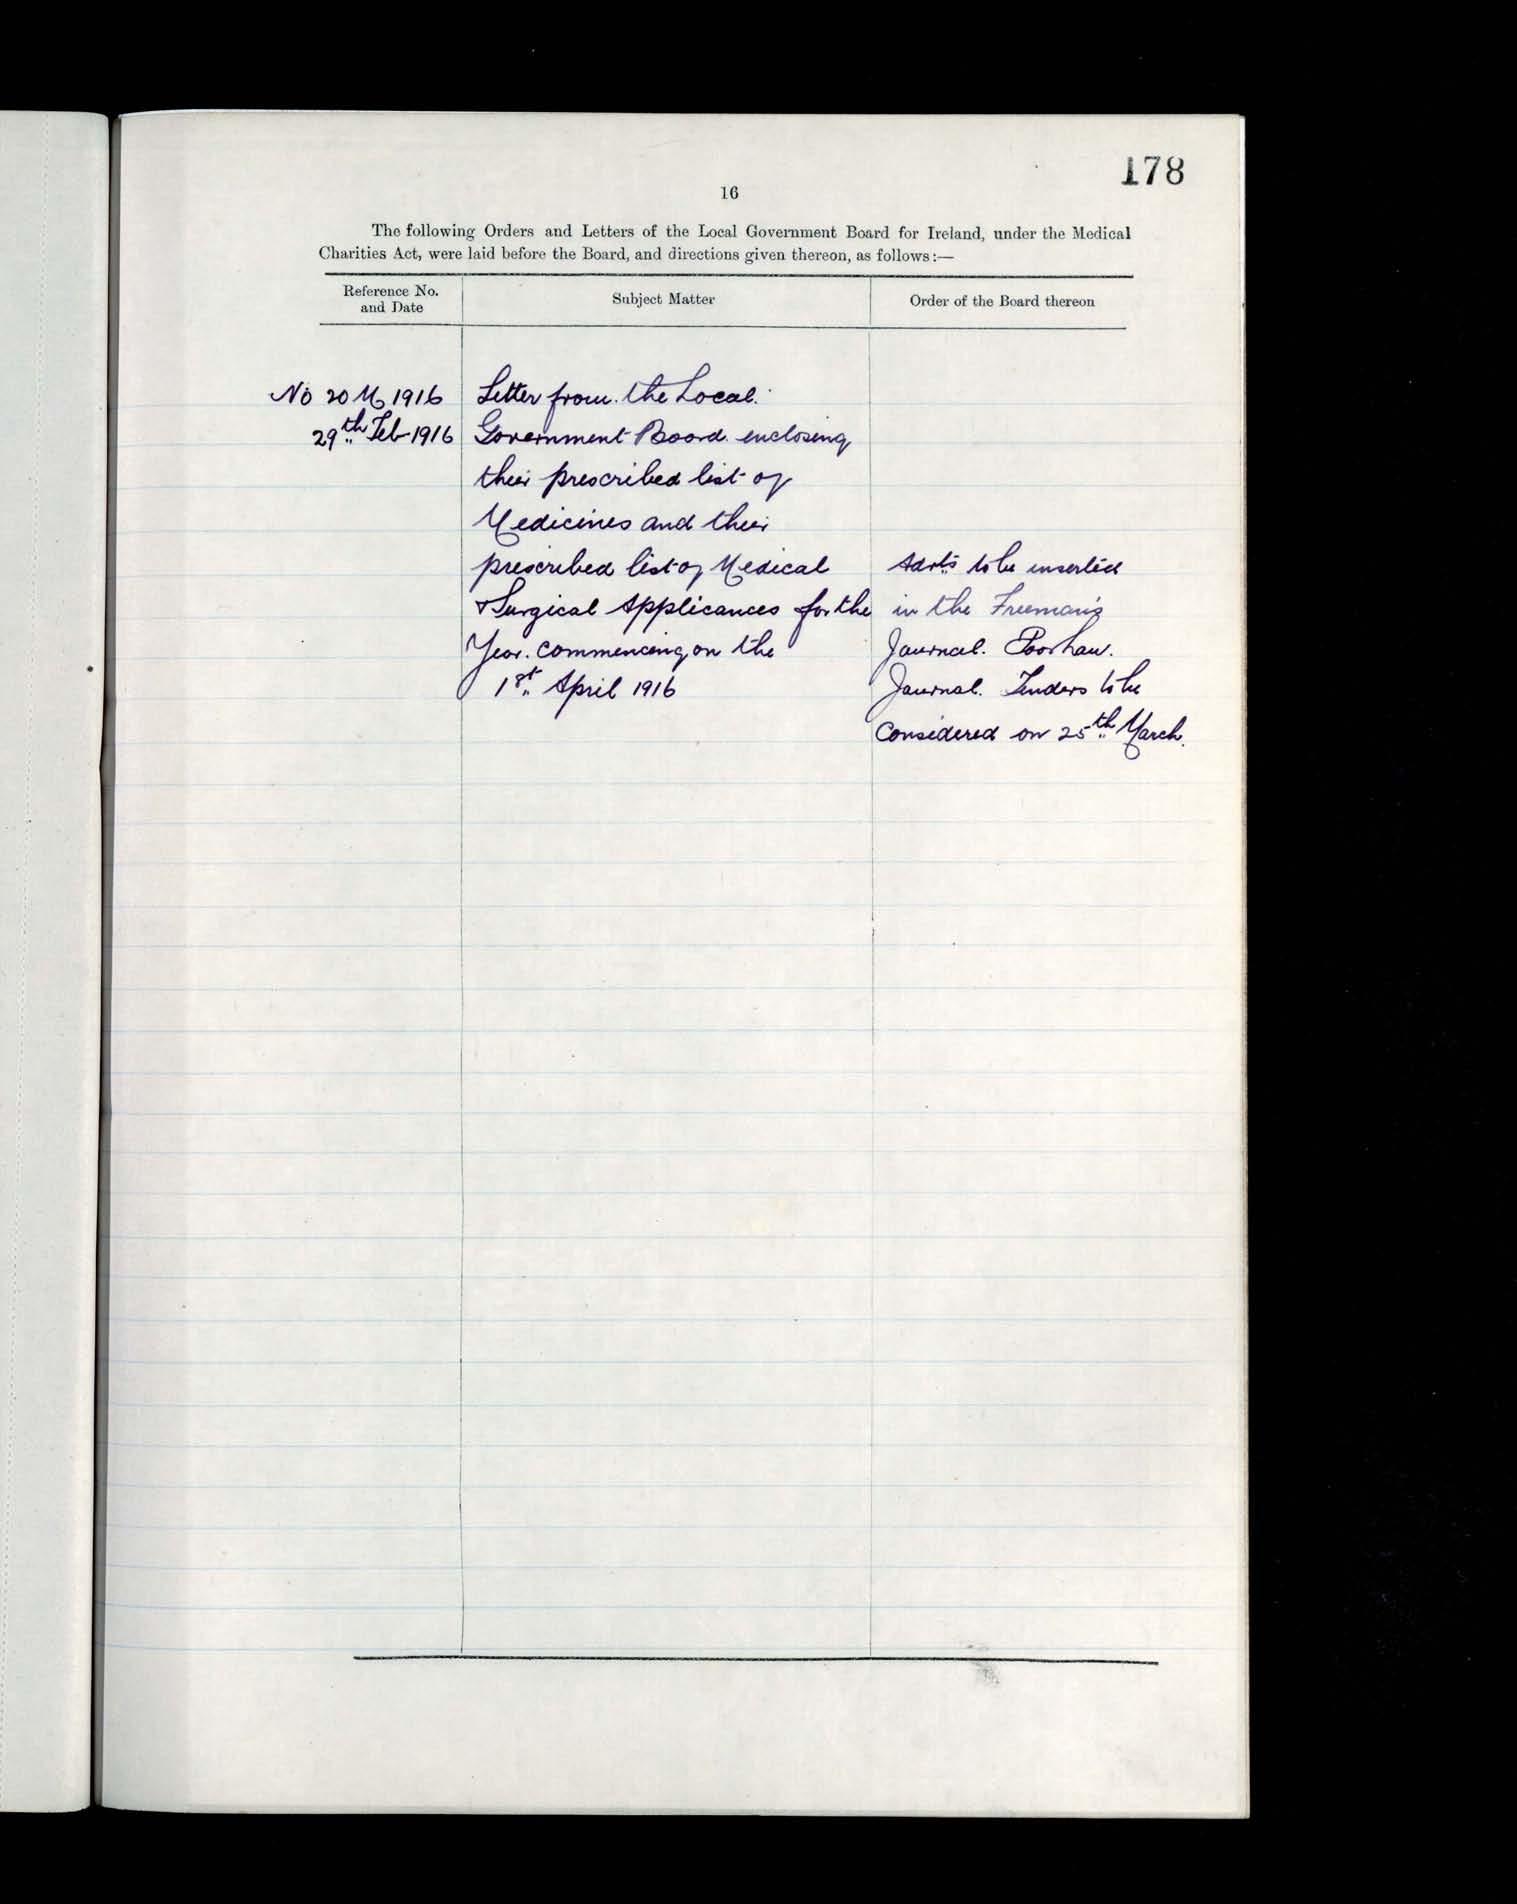 178
16
The following Orders and Letters of the Local Government Board for Ireland, under the Medical
Charities Act, were laid before the Board, and directions given thereon, as follows:—
Reference No.
and Date
Subject Matter
Order of the Board thereon
No 20 M 1916
29th Feb 1916
Letter from the Local
Government Board enclosing
their prescribed list of
Medicines and their
prescribed list of Medical
& Surgical Applicances for the
Year commencing on the
1st April 1916
Advts to be inserted
in the Freeman's
Journal. Poor Law.
Journal. Tenders to be
Considered on 25th March.